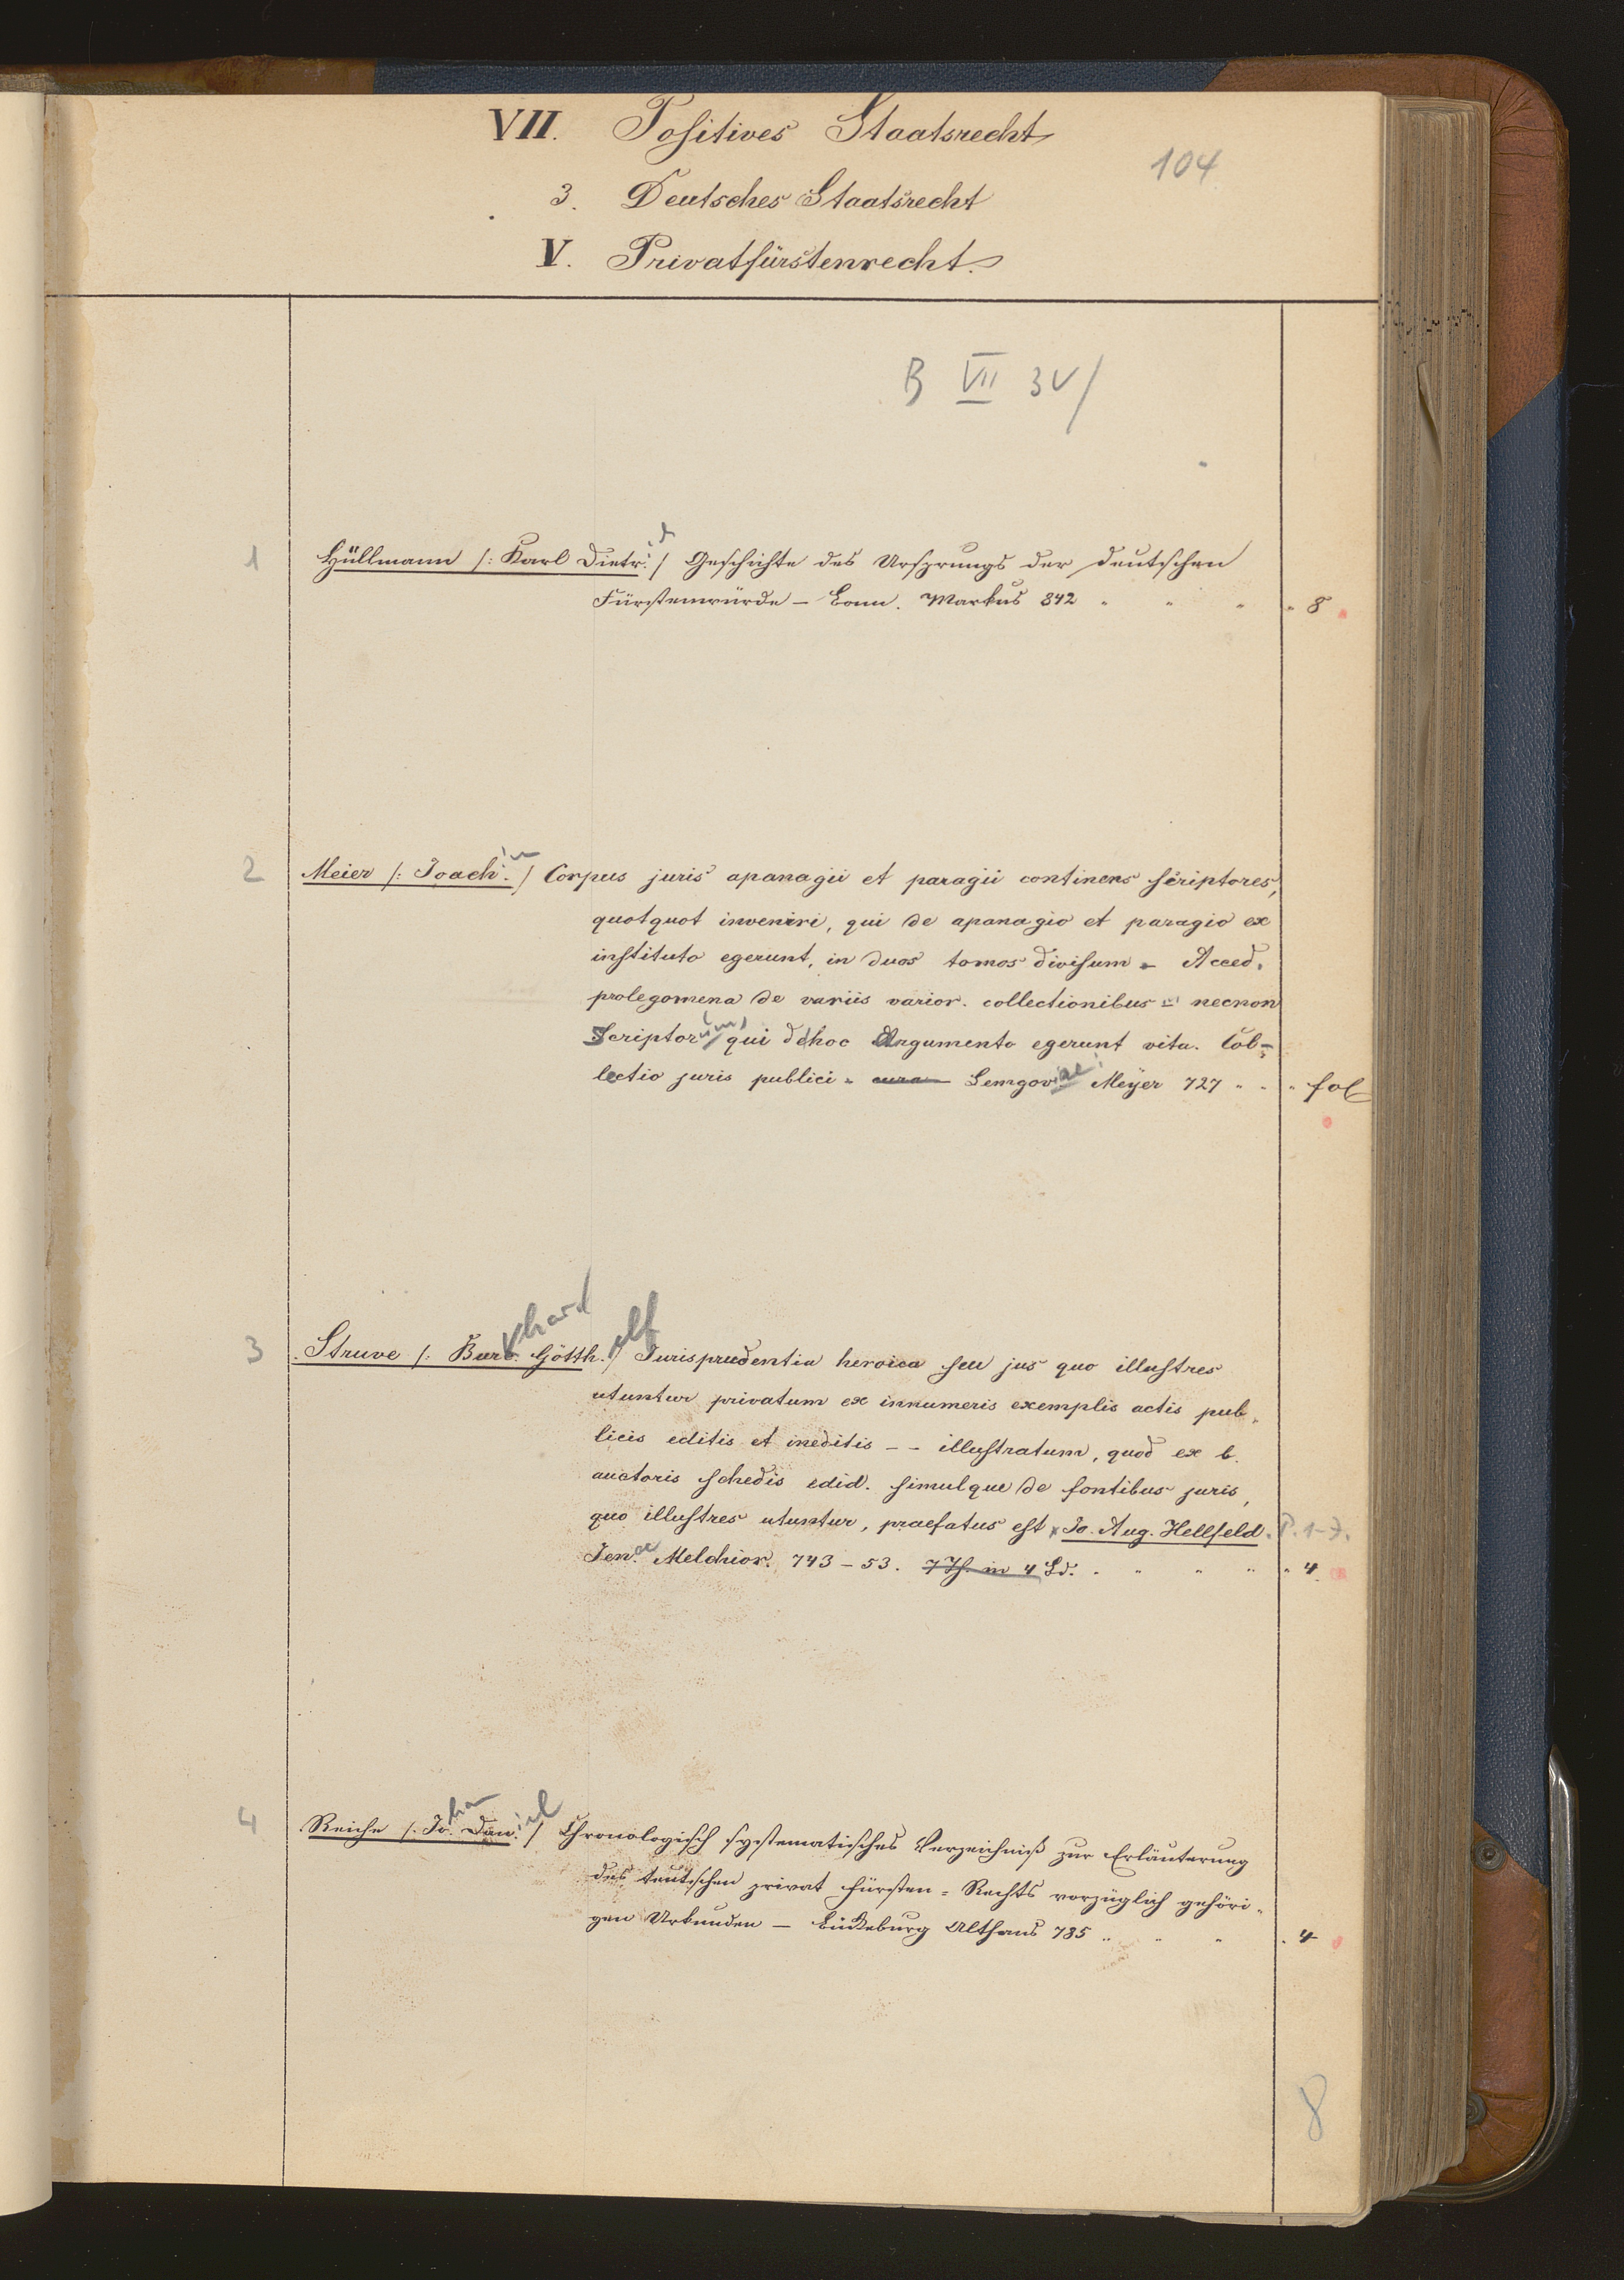 VII. Positives Staatsrecht
104
3. Deutsches Staatsrecht
V. Privatfürstenrecht.
B VII 3 V/
1 Hüllmann /: Karl Dietr. / Geschichte des Ursprungs der deutschen
Fürstenwürde – Bonn. Markus 842 " " " " 8
2 Meier /: Joachim / Corpus juris apanagii et paragii continens scriptores,
quotquot inveniri, qui de apanagio et paragio ex
instituto egerunt, in duos tomos divisum – Acced.
prolegomena de variis varior. collectionibus – necnon
Scriptorum qui de hoc Argumento egerunt vita. Col-
lectio juris publici – cura Lemgoviae Meÿer 727 " " " fol
3 Struve /: Burkhard Gotth.elf / Jurisprudentia heroica seu jus quo illustres
utuntur privatum ex innumeris exemplis actis pub-
licis editis et ineditis – – illustratum, quod ex b.
auctoris schedis edid. simulque de fontibus juris,
quo illustres utuntur, praefatus est Jo. Aug. Hellfeld. P. 1-7.
Jenae Melchior. 743–53. 7 Th. in 4 Bd. " " " " 4.
4 Reiche /: Johan Daniel / Chronologisch systematisches Verzeichniß zur Erläuterung
des teutschen privat Fürsten-Rechts vorzüglich gehöri-
gen Urkunden – Bückeburg Althans 785 " " " " 4
8